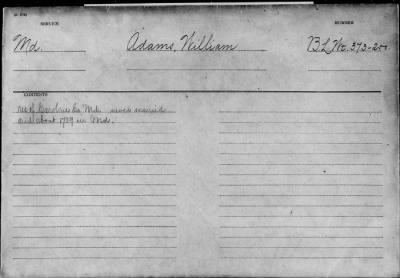 SERVICE NUMBER
Md. Adams, William B.L.Wt. 373-200
CONTENTS
Res. of Caroline Co. Md. never married
died about 1789 in Md.